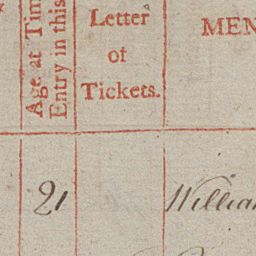 Age at Tim
Entry in this
Letter
of
Tickets.
MEN
21
Willia